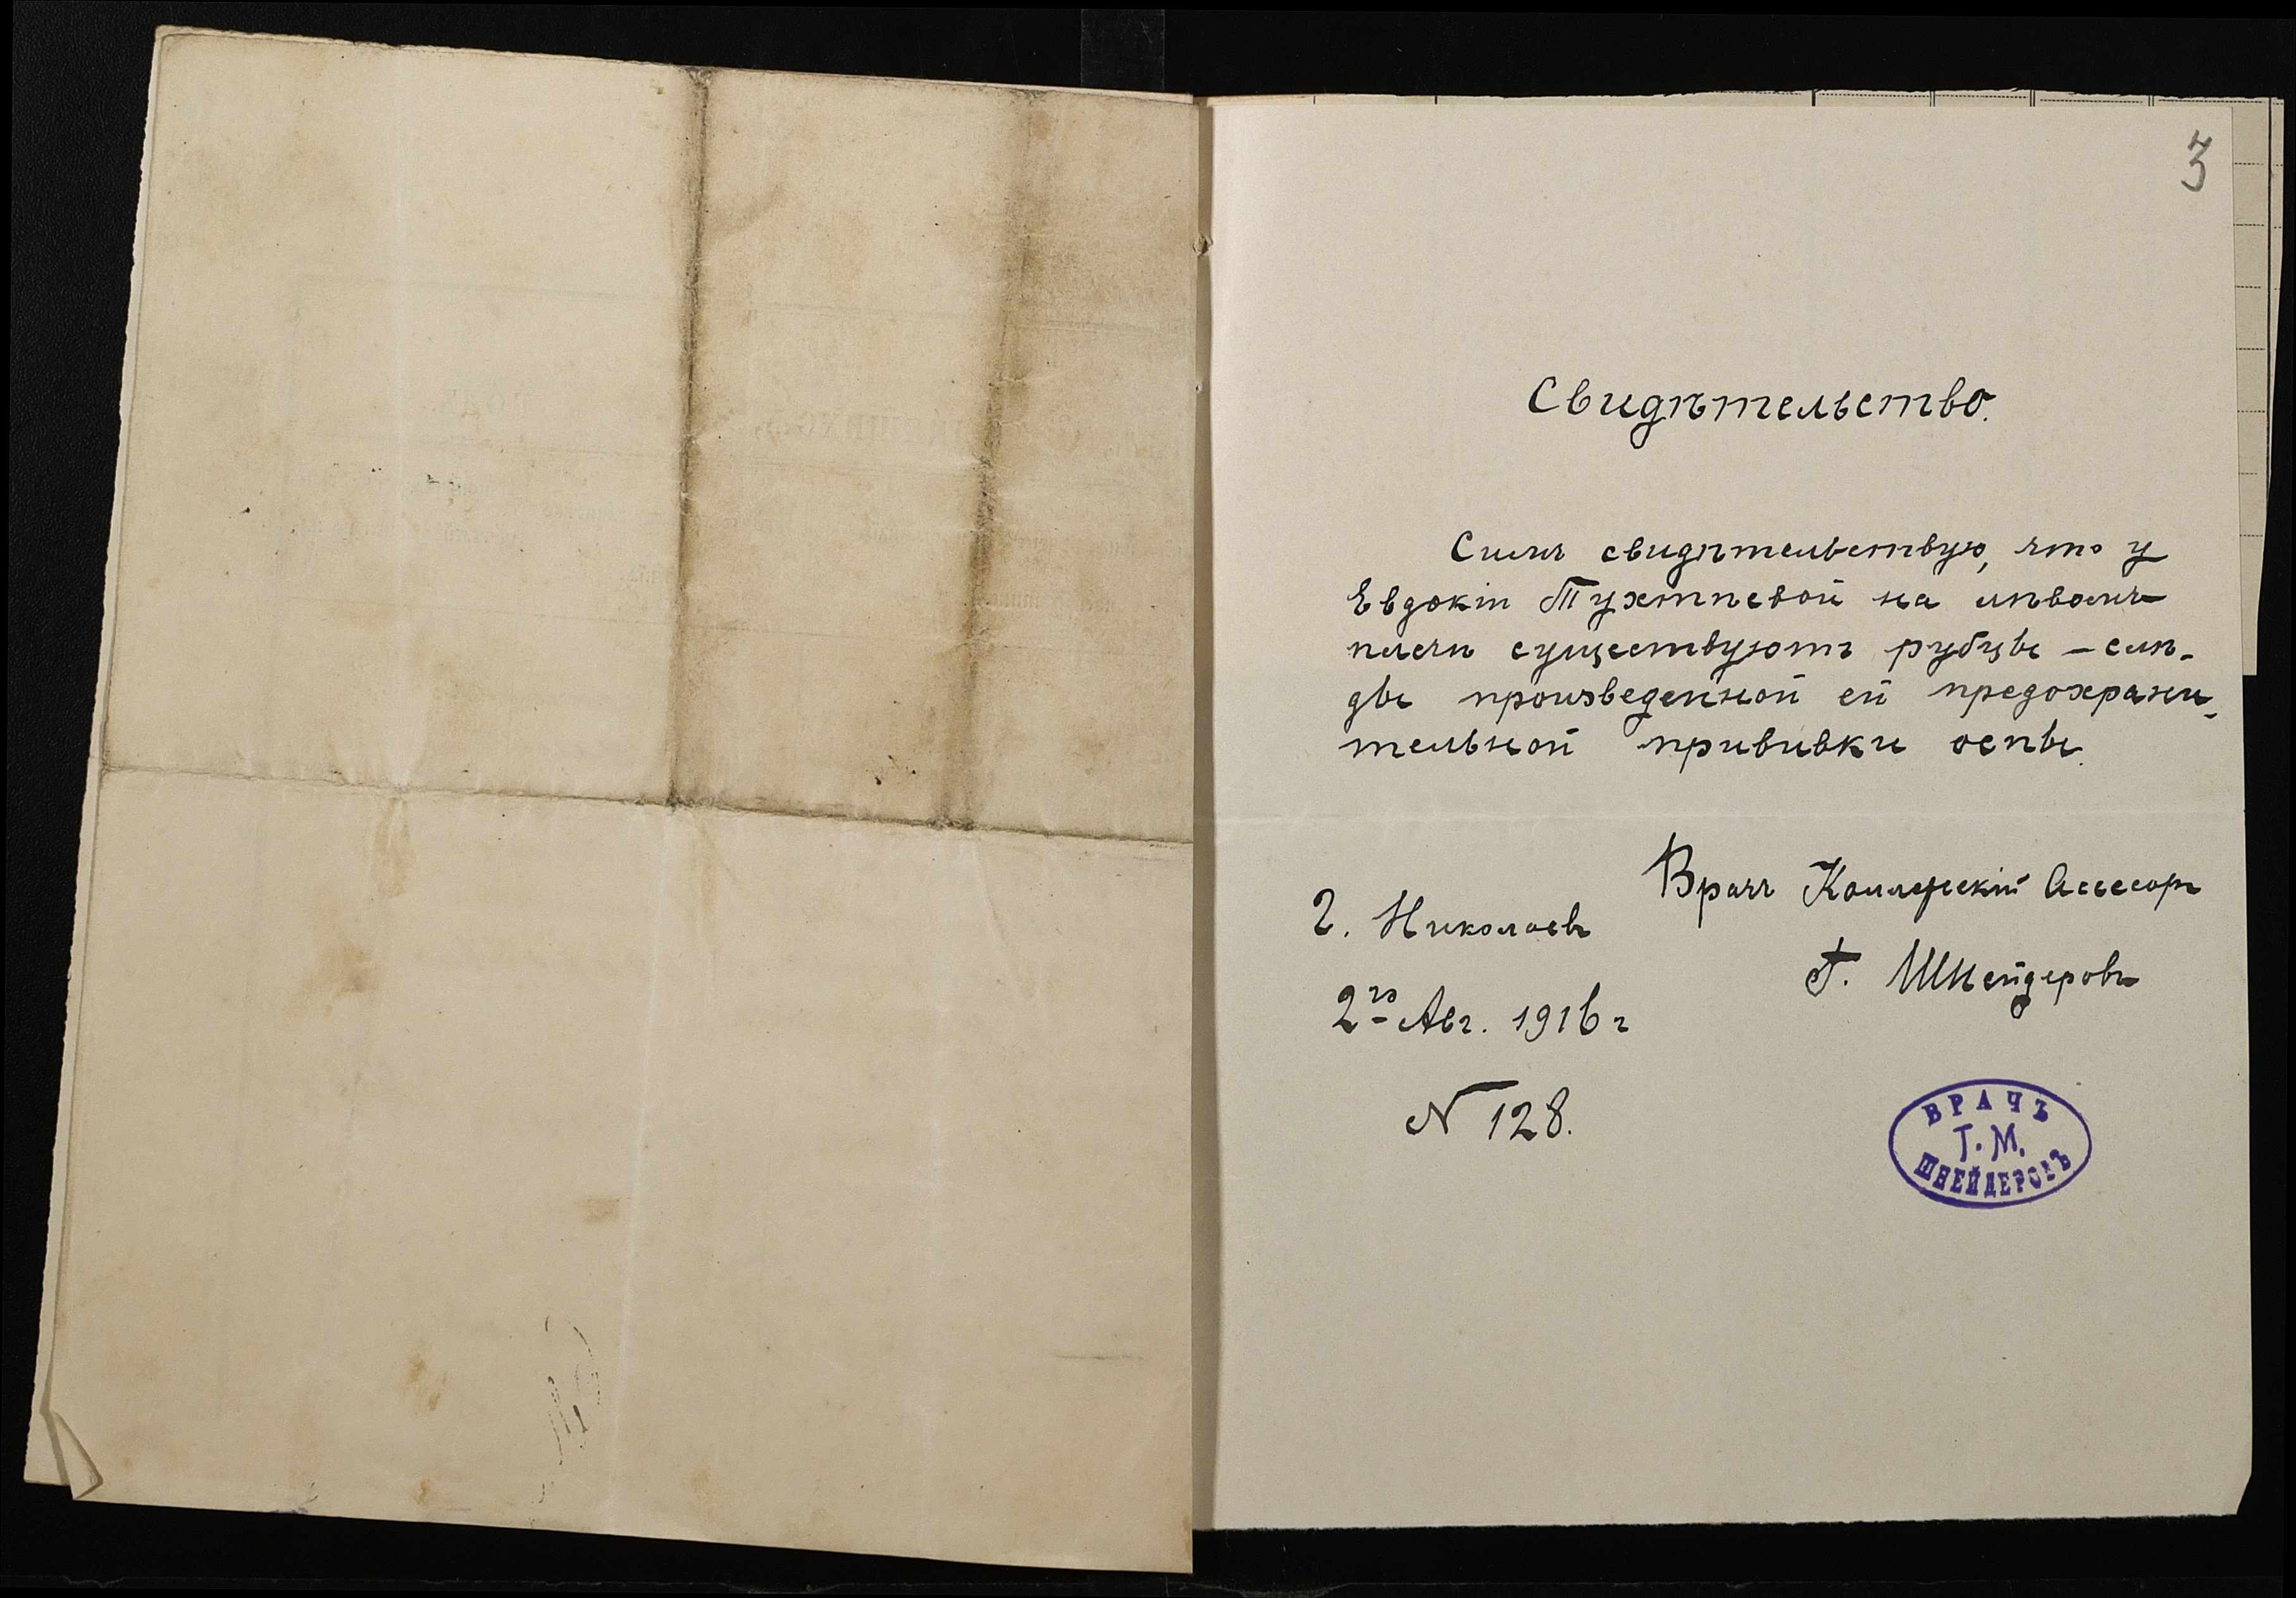 3
Свидѣтельство.
Симъ свидѣтельствую, что у
Евдокіи Тухтѣевой на лѣвомъ
плечѣ существуютъ рубцы – слѣ-
ды произведенной ей предохрани-
тельной прививки оспы.
Врачъ Коллежскій Асессоръ
Г. Николаевъ
Г. Шнейдеровъ
2го Авг. 1916 г
N 128.
ВРАЧЪ
Г. М.
ШНЕЙДЕРОВЪ